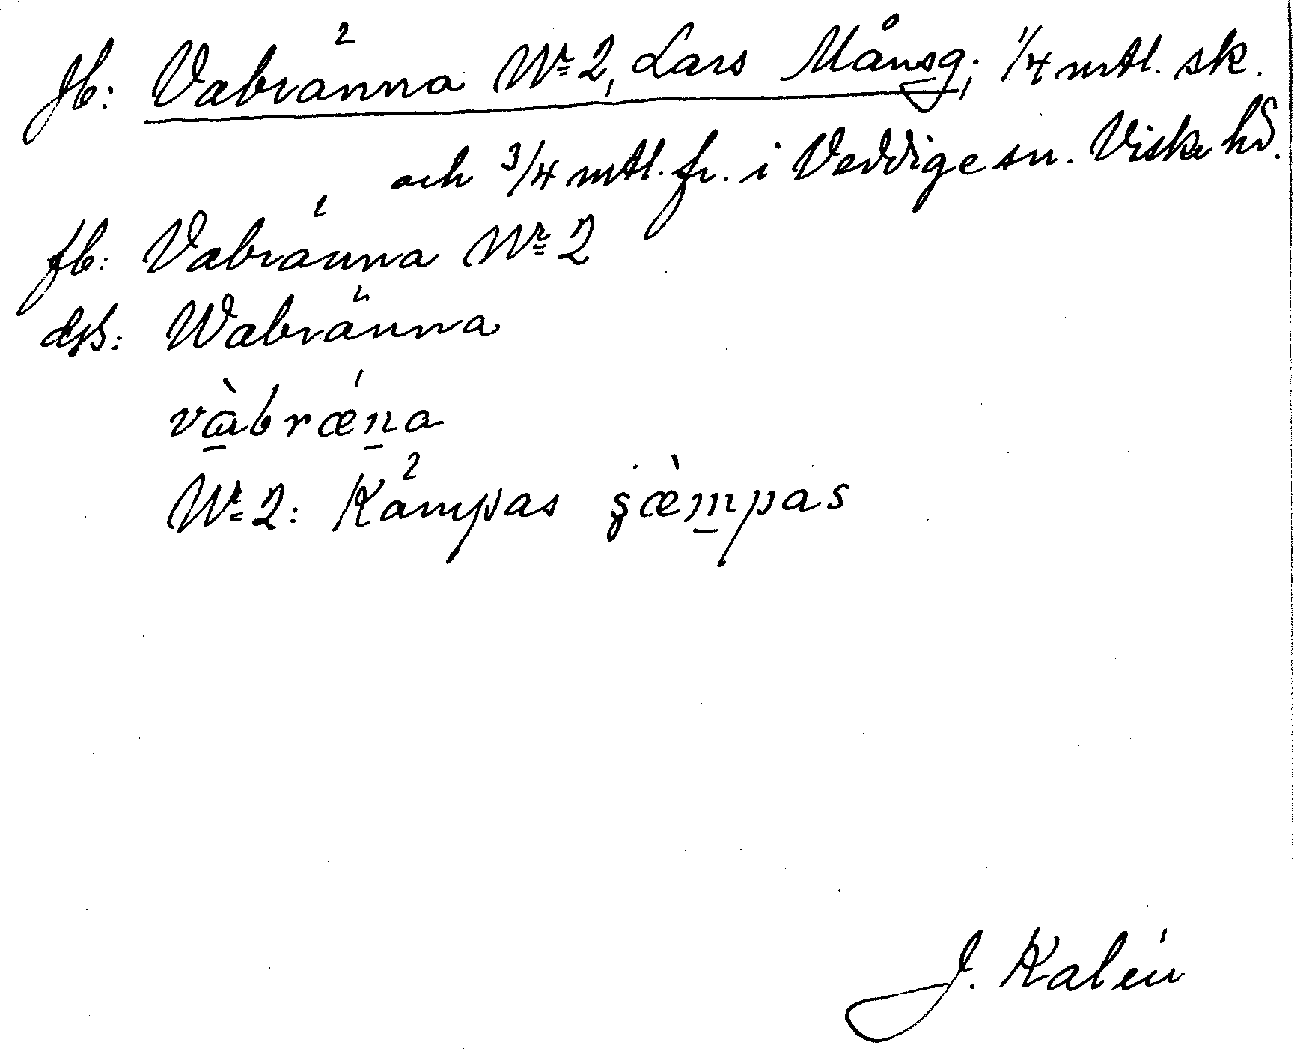 jb: Vabränna Nr 2, Lars Månsg; 1/4 mtl. sk.
och 3/4 mtl. fr. i Veddige sn. Viske hd.
fb: Vabränna Nr 2
dsb: Wabränna
và̠brǽn̠a
Nr 2: Kämpas ʂæ̀m̠pas
J. Kalén